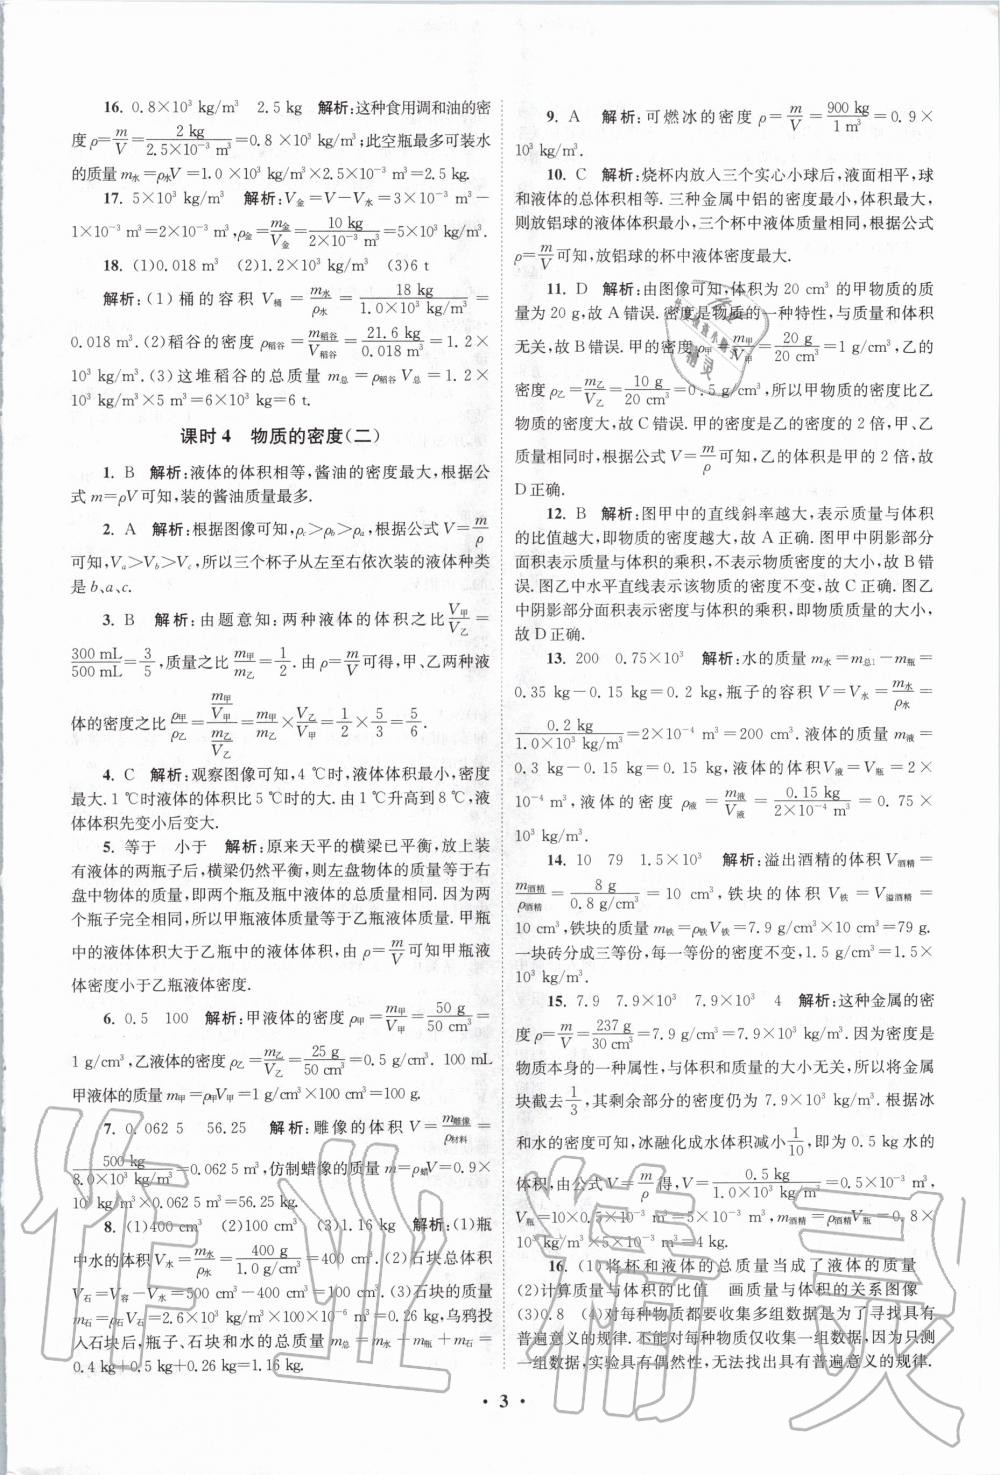 16. 0.8×10³ kg/m³　2.5 kg　解析:这种食用调和油的密
度ρ=m/V=2 kg/2.5×10⁻³ m³=0.8×10³ kg/m³;此空瓶最多可装水
的质量m水=ρ水V=1.0×10³ kg/m³×2.5×10⁻³ m³=2.5 kg.
17. 5×10³ kg/m³　解析:V金=V-V水=3×10⁻³ m³-
1×10⁻³ m³=2×10⁻³ m³,ρ金=m金/V金=10 kg/2×10⁻³ m³=5×10³ kg/m³.
18. (1)0.018 m³　(2)1.2×10³ kg/m³　(3)6 t
解析:(1)桶的容积V桶=m水/ρ水=18 kg/1.0×10³ kg/m³=
0.018 m³.(2)稻谷的密度ρ稻谷=m稻谷/V稻谷=21.6 kg/0.018 m³=1.2×
10³ kg/m³.(3)这堆稻谷的总质量m总=ρ稻谷V总=1.2×
10³ kg/m³×5 m³=6×10³ kg=6 t.
课时4　物质的密度(二)
1. B　解析:液体的体积相等,酱油的密度最大,根据公
式m=ρV可知,装的酱油质量最多.
2. A　解析:根据图像可知,ρc>ρb>ρa,根据公式V=m/ρ
可知,Va>Vb>Vc,所以三个杯子从左向右依次装的液体种类
是b、a、c.
3. B　解析:由题意知:两种液体的体积之比V甲/V乙=
300 mL/500 mL=3/5,质量之比m甲/m乙=1/2.由ρ=m/V可得,甲、乙两种液
体的密度之比ρ甲/ρ乙=(m甲/V甲)/(m乙/V乙)=m甲/m乙×V乙/V甲=1/2×5/3=5/6.
4. C　解析:观察图像可知,4 ℃时,液体体积最小,密度
最大.1 ℃时液体的体积比5 ℃时的大.由1 ℃升高到8 ℃,液
体体积先变小后变大.
5. 等于　小于　解析:原来天平的横梁已平衡,放上装
有液体的两瓶子后,横梁仍然平衡,则左盘物体的质量等于右
盘中物体的质量,即两个瓶及瓶中液体的总质量相同.因为两
个瓶子完全相同,所以甲瓶液体质量等于乙瓶液体质量.甲瓶
中的液体体积大于乙瓶中的液体体积,由ρ=m/V可知甲瓶液
体密度小于乙瓶液体密度.
6. 0.5　100　解析:甲液体的密度ρ甲=m甲/V甲=50 g/50 cm³=
1 g/cm³,乙液体的密度ρ乙=m乙/V乙=25 g/50 cm³=0.5 g/cm³. 100 mL
甲液体的质量m甲=ρ甲V甲=1 g/cm³×100 cm³=100 g.
7. 0.062 5　56.25　解析:雕像的体积V=m雕像/ρ材料=
500 kg/8.0×10³ kg/m³=0.062 5 m³,仿制蜡像的质量m=ρ蜡V=0.9×
10³ kg/m³×0.062 5 m³=56.25 kg.
8. (1)400 cm³　(2)100 cm³　(3)1.16 kg　解析:(1)瓶
中水的体积V水=m水/ρ水=400 g/1.0 g/cm³=400 cm³.(2)石块总体积
V石=V容-V水=500 cm³-400 cm³=100 cm³.(3)石块的质量
m石=ρ石V石=2.6×10³ kg/m³×100×10⁻⁶ m³=0.26 kg,乌鸦投
入石块后,瓶子、石块和水的总质量m总=m瓶+m水+m石=
0.4 kg+0.5 kg+0.26 kg=1.16 kg.
9. A　解析:可燃冰的密度ρ=m/V=900 kg/1 m³=0.9×
10³ kg/m³.
10. C　解析:烧杯内放入三个实心小球后,液面相平,球
和液体的总体积相等.三种金属中铝的密度最小,体积最大,
则放铝球的液体体积最小,三个杯中液体质量相同,根据公式
ρ=m/V可知,放铝球的杯中液体密度最大.
11. D　解析:由图像可知,体积为20 cm³的甲物质的质
量为20 g,故A错误.密度是物质的一种特性,与质量和体积
无关,故B错误.甲的密度ρ甲=m甲/V甲=20 g/20 cm³=1 g/cm³,乙的
密度ρ乙=m乙/V乙=10 g/20 cm³=0.5 g/cm³,所以甲物质的密度比乙
物质的密度大,故C错误.甲的密度是乙的密度的2倍,甲、乙
质量相同时,根据公式V=m/ρ可知,乙的体积是甲的2倍,故
D正确.
12. B　解析:图甲中的直线斜率越大,表示质量与体积
的比值越大,即物质的密度越大,故A正确.图甲中阴影部分
面积表示质量与体积的乘积,不表示物质密度的大小,故B错
误.图乙中水平直线表示该物质的密度不变,故C正确.图乙
中阴影部分面积表示密度与体积的乘积,即物质质量的大小,
故D正确.
13. 200　0.75×10³　解析:水的质量m水=m总1-m瓶=
0.35 kg-0.15 kg=0.2 kg,瓶子的容积V=V水=m水/ρ水=
0.2 kg/1.0×10³ kg/m³=2×10⁻⁴ m³=200 cm³.液体的质量m液=
0.3 kg-0.15 kg=0.15 kg,液体的体积V液=V瓶=2×
10⁻⁴ m³,液体的密度ρ液=m液/V液=0.15 kg/2×10⁻⁴ m³=0.75×
10³ kg/m³.
14. 10　79　1.5×10³　解析:溢出酒精的体积V酒精=
m酒精/ρ酒精=8 g/0.8 g/cm³=10 cm³,铁块的体积V铁=V溢酒精=
10 cm³,铁块的质量m铁=ρ铁V铁=7.9 g/cm³×10 cm³=79 g.
一块砖分成三等份,每一等份的密度不变,1.5 g/cm³=1.5×
10³ kg/m³.
15. 7.9　7.9×10³　7.9×10³　4　解析:这种金属的密
度ρ=m/V=237 g/30 cm³=7.9 g/cm³=7.9×10³ kg/m³.因为密度是
物质本身的一种属性,与体积和质量无关,所以将此金属
块截去1/3,其剩余部分的密度仍为7.9×10³ kg/m³.根据冰
和水的密度可知,冰融化成水体积减小1/10,即为0.5 kg水的
体积,由公式V=m/ρ得,V=0.5 kg/1.0×10³ kg/m³=0.5×10⁻³ m³,
V瓶=10×0.5×10⁻³ m³=5×10⁻³ m³,m酒精=ρ酒精V瓶=0.8×
10³ kg/m³×5×10⁻³ m³=4 kg.
16. (1)将杯和液体的总质量当成了液体的质量
(2)计算质量与体积的比值　画质量与体积的关系图像
(3)0.8　(4)对每种物质都要收集多组数据是为了寻找具有
普遍意义的规律.不能对每种物质仅收集一组数据,因为只测
一组数据,实验具有偶然性,无法找出具有普遍意义的规律.
• 3 •
作业精灵